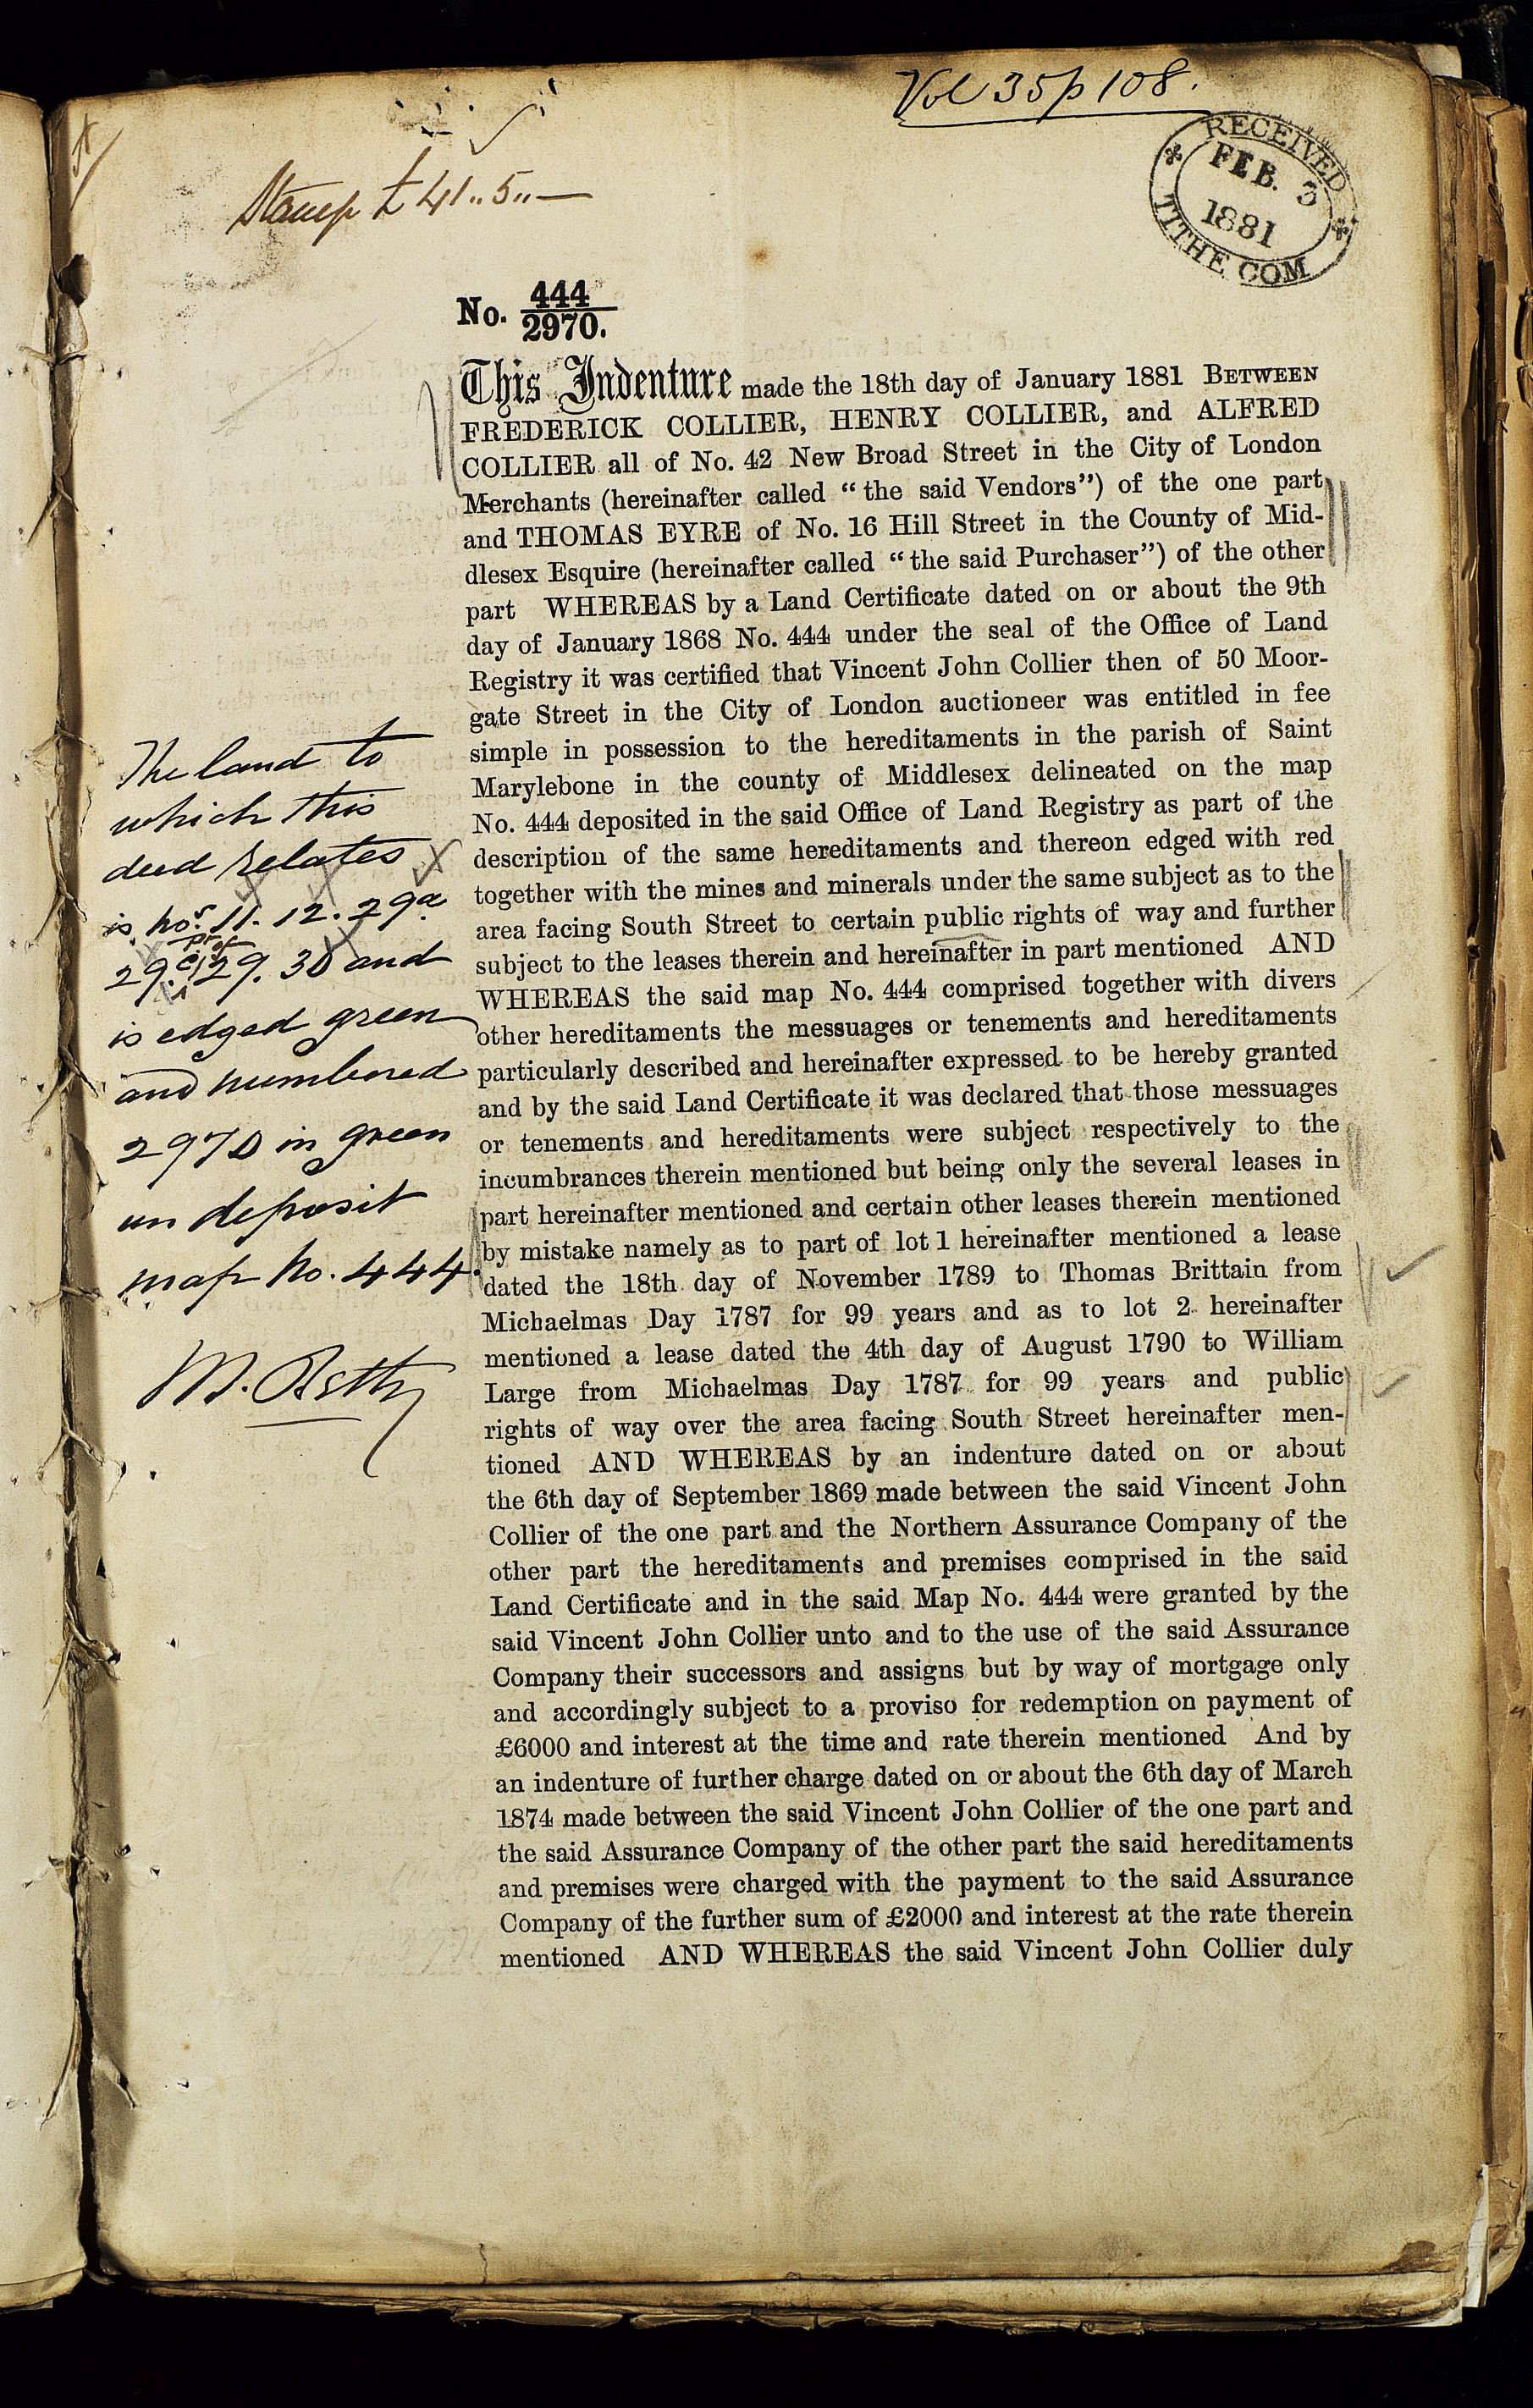 Vol 35 p 108.
RECEIVED
FEB. 3
1881
TITHE COM
Stamp £ 41..5..—
No. 444
2970.
This Indenture made the 18th day of January 1881 BETWEEN
FREDERICK COLLIER, HENRY COLLIER, and ALFRED
COLLIER all of No. 42 New Broad Street in the City of London
Merchants (hereinafter called “the said Vendors”) of the one part
and THOMAS EYRE of No. 16 Hill Street in the County of Mid-
dlesex Esquire (hereinafter called “the said Purchaser”) of the other
part WHEREAS by a Land Certificate dated on or about the 9th
day of January 1868 No. 444 under the seal of the Office of Land
Registry it was certified that Vincent John Collier then of 50 Moor-
gate Street in the City of London auctioneer was entitled in fee
simple in possession to the hereditaments in the parish of Saint
Marylebone in the county of Middlesex delineated on the map
No. 444 deposited in the said Office of Land Registry as part of the
description of the same hereditaments and thereon edged with red
together with the mines and minerals under the same subject as to the
area facing South Street to certain public rights of way and further
subject to the leases therein and hereinafter in part mentioned AND
WHEREAS the said map No. 444 comprised together with divers
other hereditaments the messuages or tenements and hereditaments
particularly described and hereinafter expressed to be hereby granted
and by the said Land Certificate it was declared that those messuages
or tenements and hereditaments were subject respectively to the
incumbrances therein mentioned but being only the several leases in
part hereinafter mentioned and certain other leases therein mentioned
by mistake namely as to part of lot 1 hereinafter mentioned a lease
dated the 18th day of November 1789 to Thomas Brittain from
Michaelmas Day 1787 for 99 years and as to lot 2 hereinafter
mentioned a lease dated the 4th day of August 1790 to William
Large from Michaelmas Day 1787 for 99 years and public
rights of way over the area facing South Street hereinafter men-
tioned AND WHEREAS by an indenture dated on or about
the 6th day of September 1869 made between the said Vincent John
Collier of the one part and the Northern Assurance Company of the
other part the hereditaments and premises comprised in the said
Land Certificate and in the said Map No. 444 were granted by the
said Vincent John Collier unto and to the use of the said Assurance
Company their successors and assigns but by way of mortgage only
and accordingly subject to a proviso for redemption on payment of
£6000 and interest at the time and rate therein mentioned And by
an indenture of further charge dated on or about the 6th day of March
1874 made between the said Vincent John Collier of the one part and
the said Assurance Company of the other part the said hereditaments
and premises were charged with the payment to the said Assurance
Company of the further sum of £2000 and interest at the rate therein
mentioned AND WHEREAS the said Vincent John Collier duly
The land to
which this
deed relates
is nos. 11. 12. 29a
29c, pt of 29. 30 and
is edged green
and numbered
2970 in green
on deposit
map No. 444.